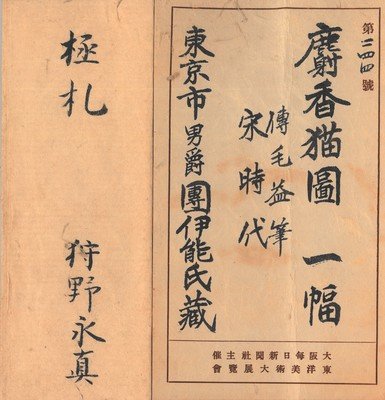 第三四四號
麝香猫圖 一幅
傳毛益筆
宋時代
東京市 男爵 團伊能氏藏
大阪每日新聞社主催
東洋美術大展覽會
極札
狩野永真